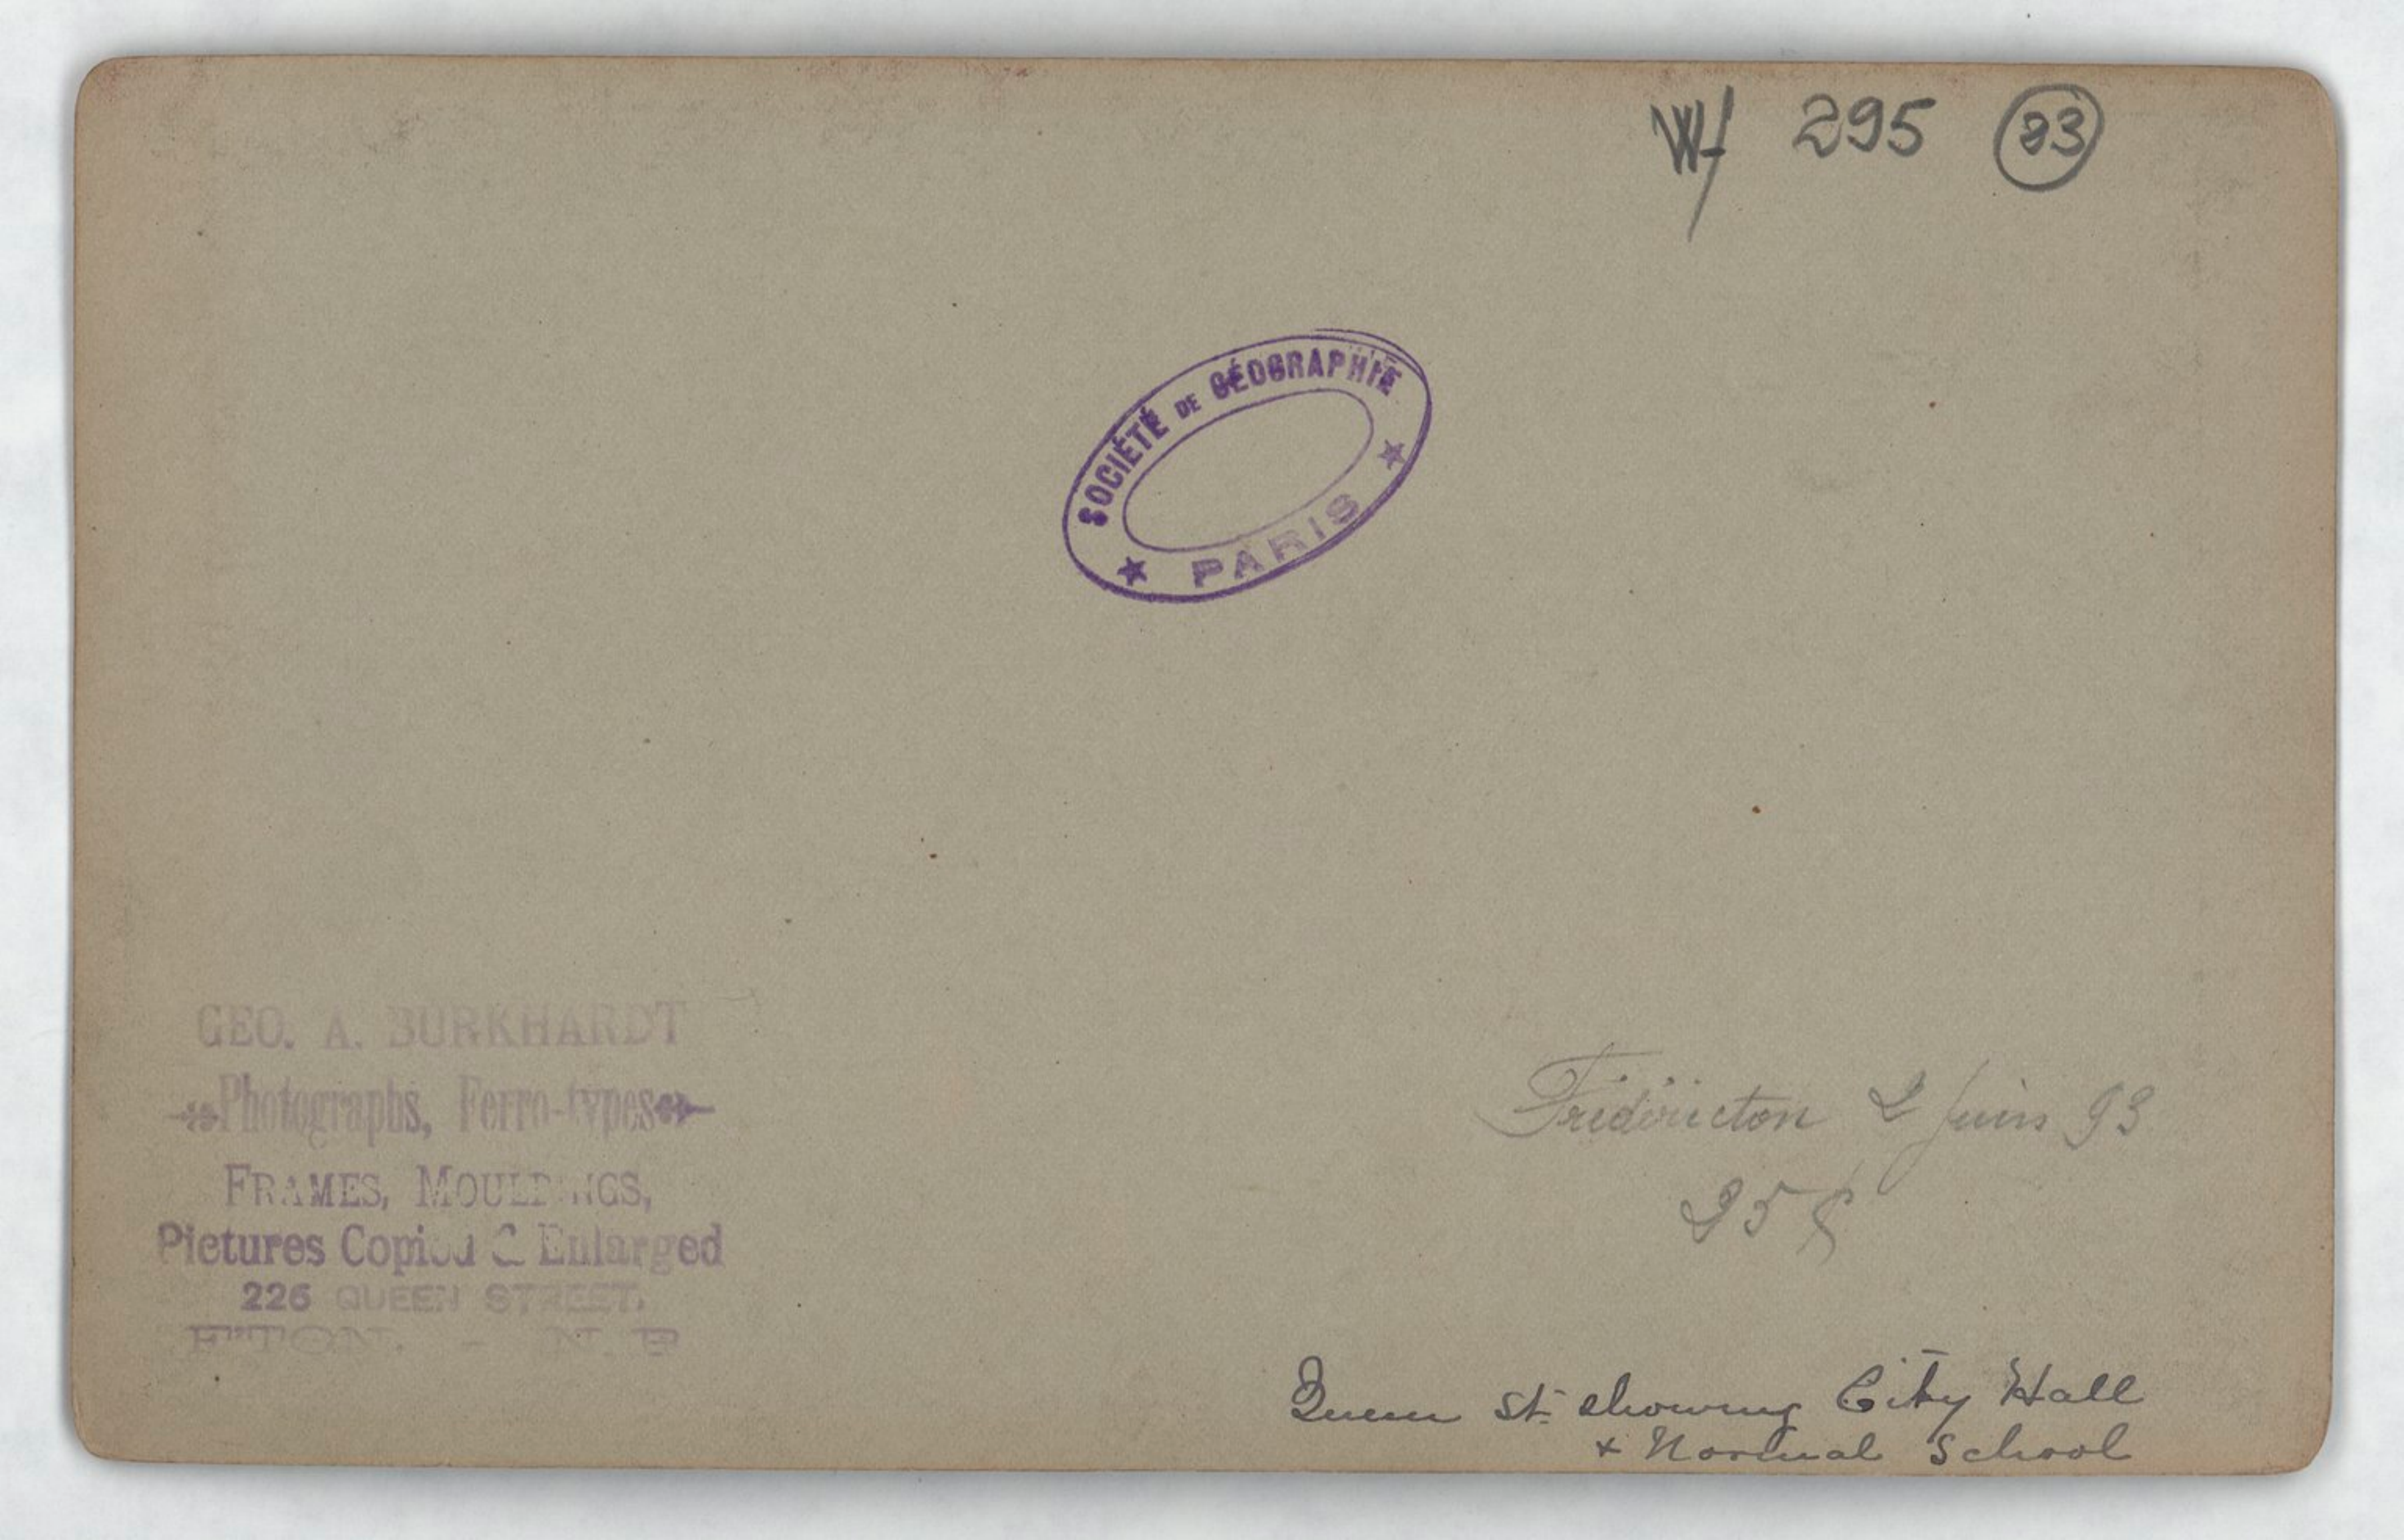 Wf 295 (23)
SOCIÉTÉ DE GÉOGRAPHIE
PARIS
GEO. A. BURKHARDT
Photographs, Ferro-types
FRAMES, MOULDINGS,
Pictures Copied & Enlarged
226 QUEEN STREET,
F'TON. - N. B
Frédéricton 2 Juin 93
25 ¢
Queen St. showing City Hall
+ Normal School